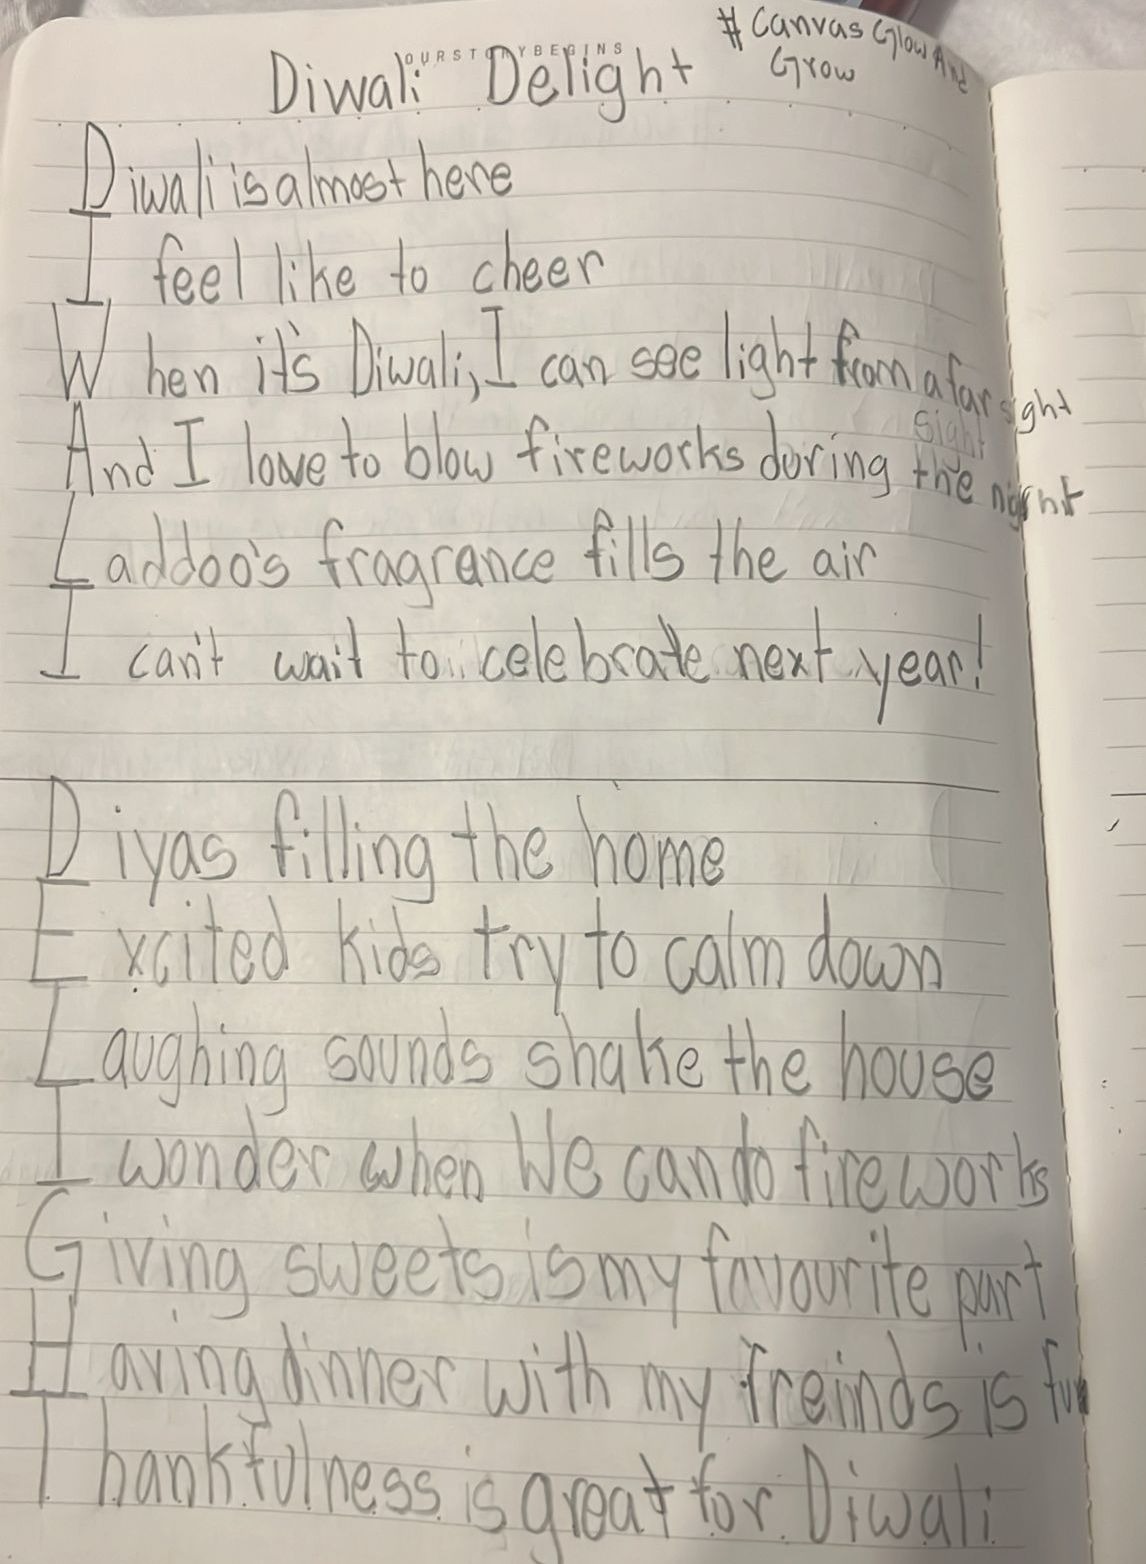 #Canvas Glow And
Grow
OURSTORYBEGINS
Diwali Delight
Diwali is almost here
I feel like to cheer
When it's Diwali, I can see light from a far sight
sight
And I love to blow fireworks during the night
Laddoo's fragrance fills the air
I can't wait to celebrate next year!
Diyas filling the home
Excited kids try to calm down
Laughing sounds shake the house
I wonder when We can do fireworks
Giving sweets is my favourite part
Having dinner with my freinds is fun
Thankfulness is great for Diwali